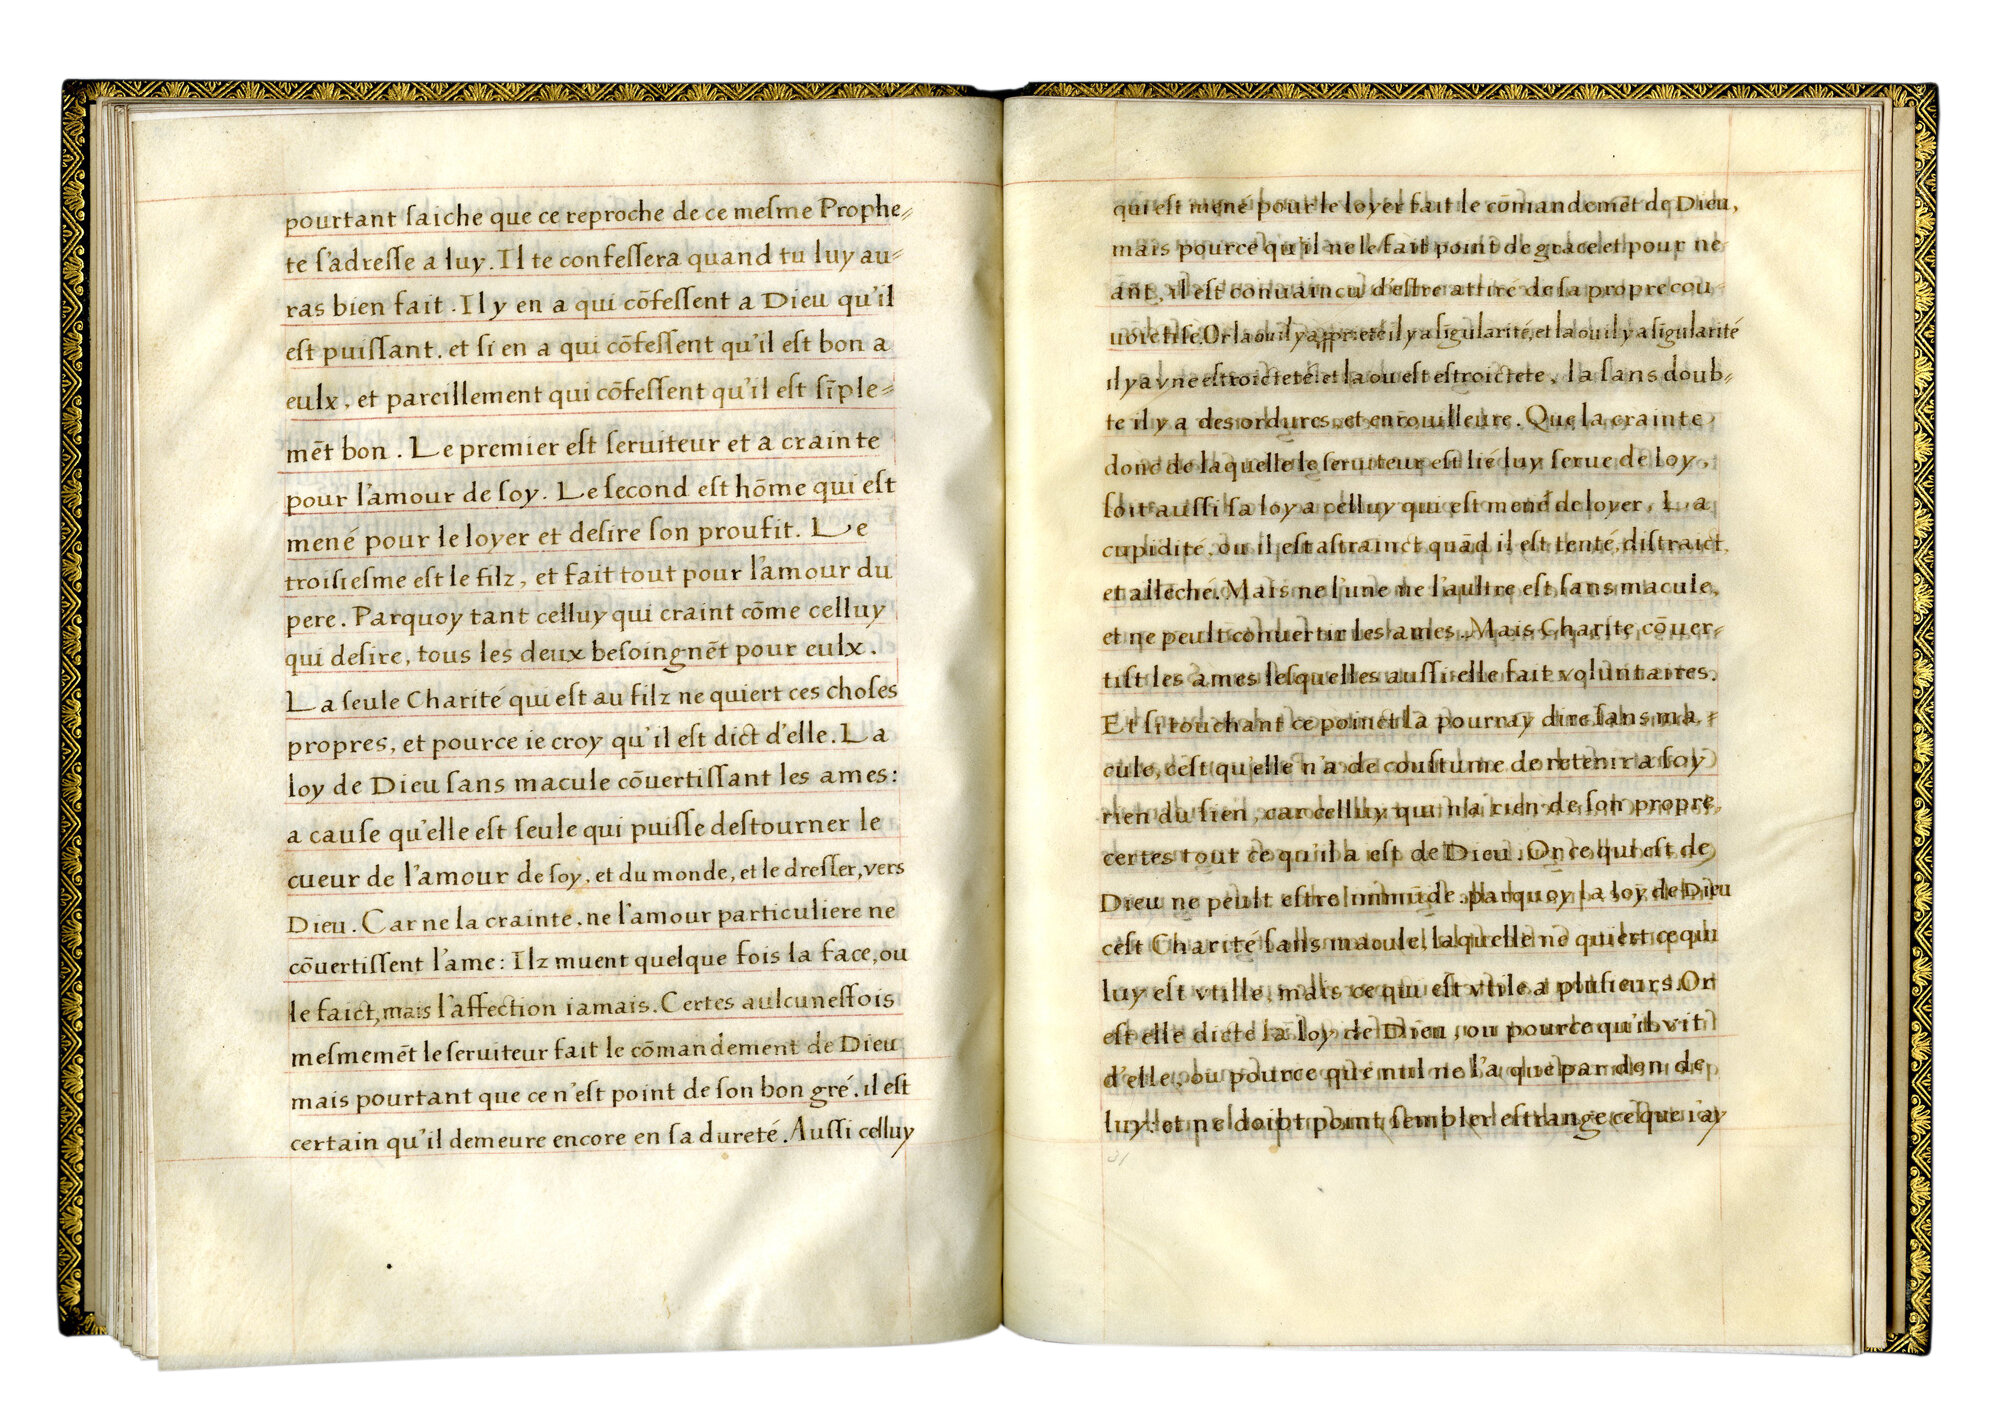 pourtant ſaiche que ce reproche de ce meſme Prophe=
te ſ'adreſſe a luy. Il te confeſſera quand tu luy au=
ras bien fait. Il y en a qui cōfeſſent a Dieu qu'il
eſt puiſſant. et ſi en a qui cōfeſſent qu'il eſt bon a
eulx, et pareillement qui cōfeſſent qu'il eſt ſīple=
mēt bon. Le premier eſt ſeruiteur et a crainte
pour l'amour de ſoy. Le ſecond eſt hōme qui eſt
mené pour le loyer et deſire ſon proufit. Le
troiſieſme eſt le filz, et fait tout pour l'amour du
pere. Parquoy tant celluy qui craint cōme celluy
qui deſire, tous les deux beſoingnēt pour eulx.
La ſeule Charité qui eſt au filz ne quiert ces choſes
propres, et pource ie croy qu'il eſt dict d'elle. La
loy de Dieu ſans macule cōuertiſſant les ames:
a cauſe qu'elle eſt ſeule qui puiſſe deſtourner le
cueur de l'amour de ſoy, et du monde, et le dreſſer, vers
Dieu. Car ne la crainte, ne l'amour particuliere ne
cōuertiſſent l'ame: Ilz muent quelque fois la face, ou
le faict, mais l'affection iamais. Certes aulcuneſfois
meſmemēt le ſeruiteur fait le cōmandement de Dieu
mais pourtant que ce n'eſt point de ſon bon gré, il eſt
certain qu'il demeure encore en ſa dureté. Auſſi celluy
qui eſt mené pour le loyer fait le cōmandemēt de Dieu,
mais pource qu'il ne le fait point de grace et pour ne
ant, il eſt conuaincu d'eſtre attiré de ſa propre cou-
uoietiſe. Or la ou il y a il y a ſigularité, et la ou il y a ſigularité
il y a vne eſtroictete: et la ou eſt eſtroictete, la ſans doub=
te il y a des ordures, et enrouilleure. Que la crainte
donc de laquelle le ſeruiteur eſt lié luy ſerue de loy,
ſoit auſſi ſa loy a celluy qui eſt mené de loyer, La
cupidité, ou il eſt aſtrainct quād il eſt tenté, diſtraict,
et alleché. Mais ne l'une ne l'aultre eſt ſans macule,
et ne peult conuertir les ames. Mais Charité cōuer=
tiſt les ames leſquelles auſſi elle fait voluntaires.
Et ſi touchant ce poinct la pourray dire ſans ma=
cule, ceſt qu'elle n'a de couſtume de retenir a ſoy
rien du ſien, car celluy qui n'a rien de ſon propre,
certes tout ce qu'il a eſt de Dieu. Or ce qui eſt de
Dieu ne peult eſtre immūde. parquoy la loy de Dieu
ceſt Charité ſans macule, laquelle ne quiert ce qui
luy eſt vtille, mais ce qui eſt vtile a pluſieurs. Or
eſt elle dicte la loy de Dieu, ou pource qu'il vit
d'elle, ou pource que nul ne l'a que par don de
luy. et ne doibt point ſembler eſtrange ce que i'ay
31